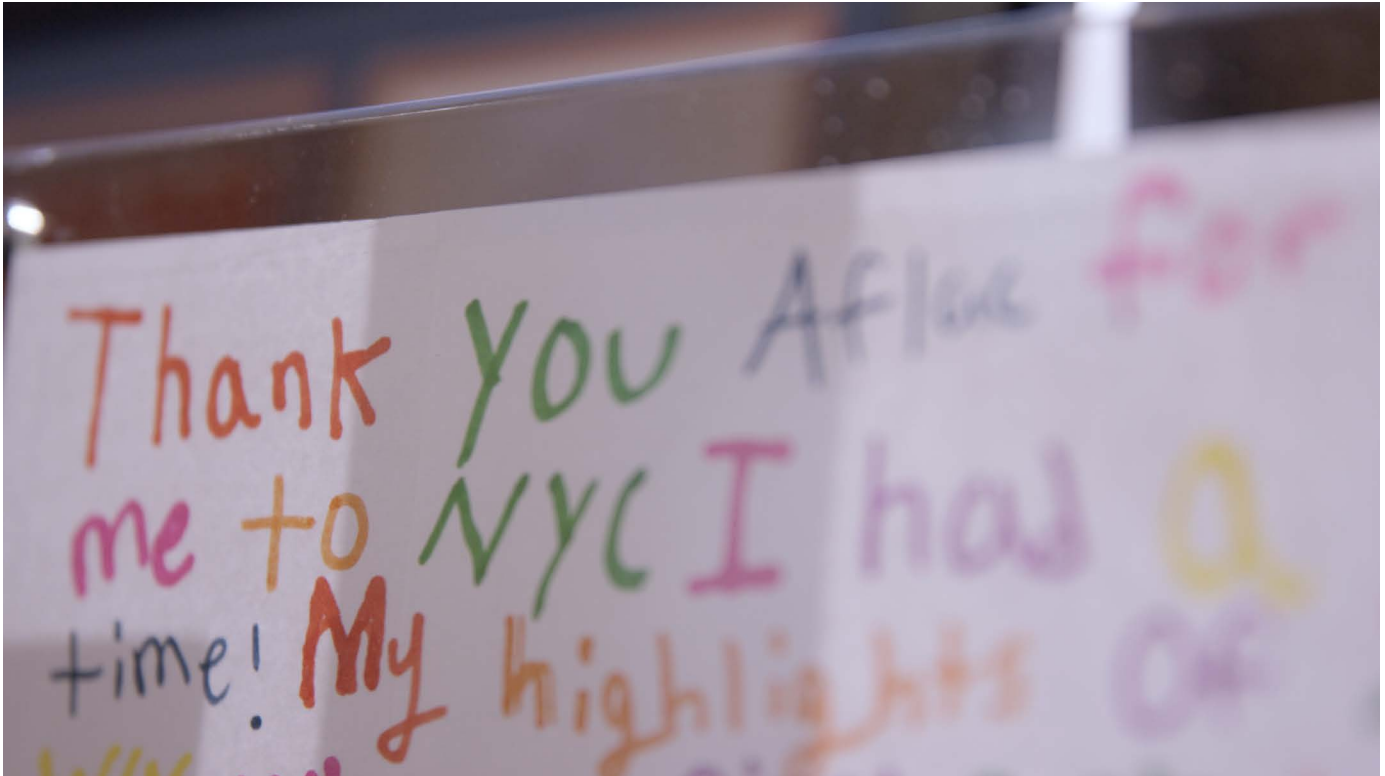 Thank you Aflac for
me to NYC I had a
time! My highlights of